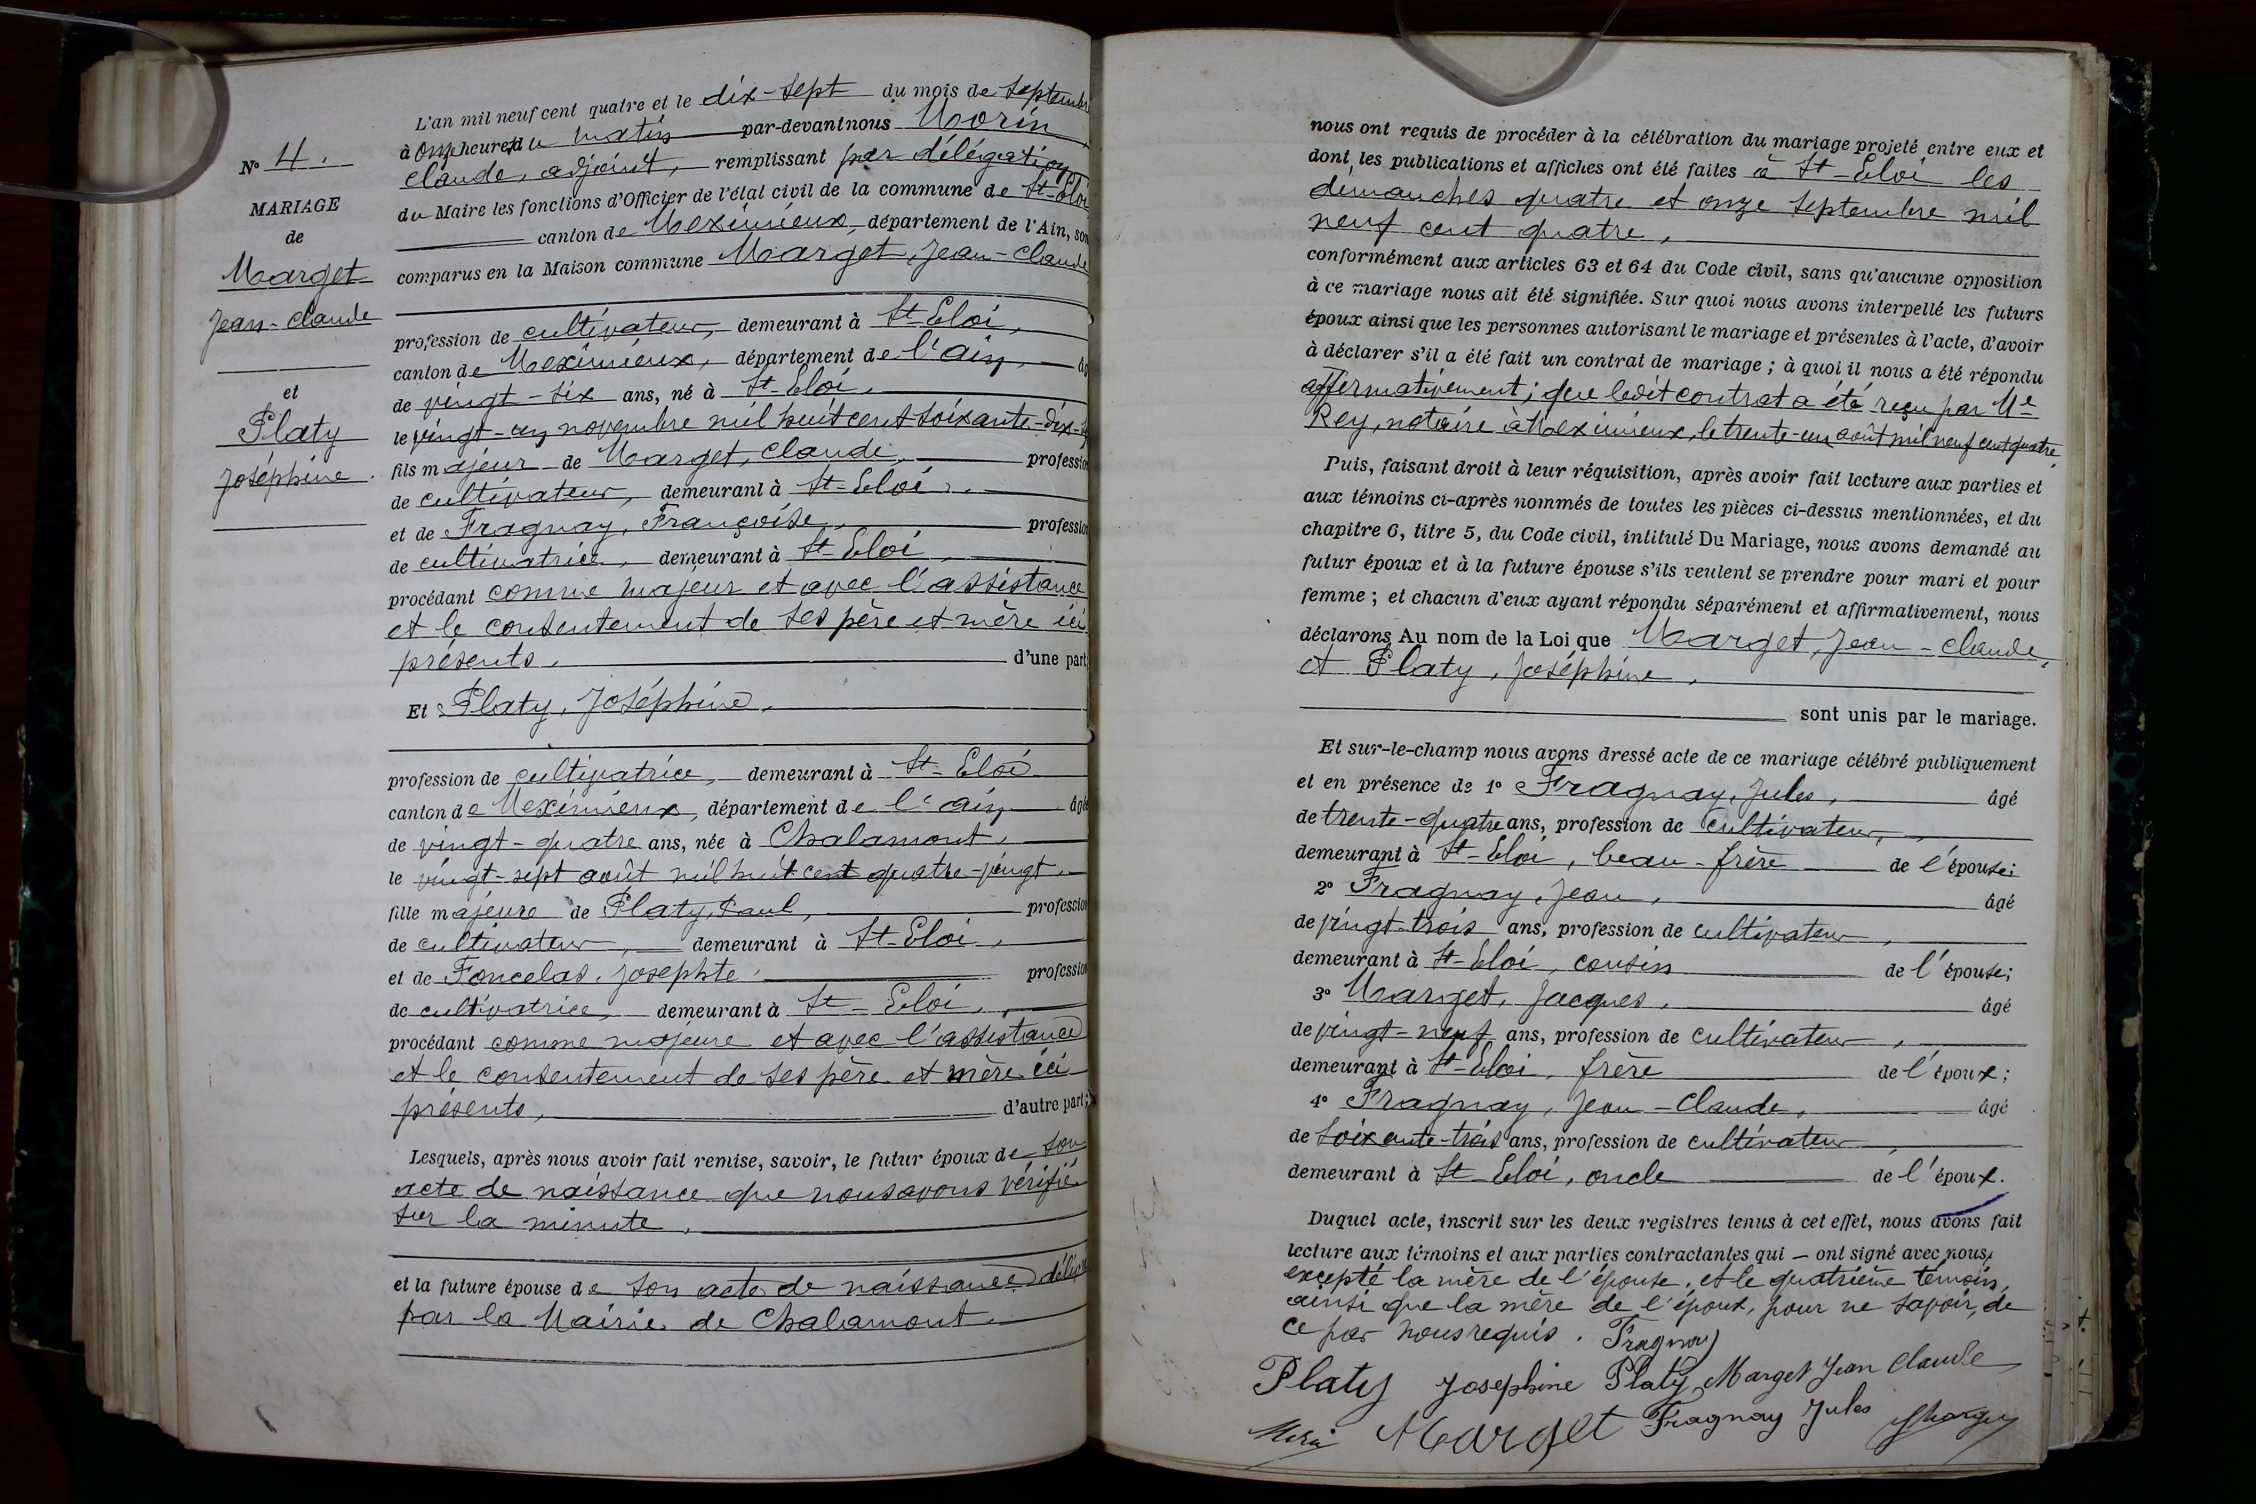 L'an mil neuf cent quatre et le dix-sept du mois de septembre
à onze heures du matin par-devant nous Morin,
Claude, adjoint, remplissant par délégation
du Maire les fonctions d'Officier de l'état civil de la commune de St-Eloi
canton de Meximieux, département de l'Ain, son
comparus en la Maison commune Marget, Jean-Claude
profession de cultivateur, demeurant à St-Eloi,
canton de Meximieux, département de l'Ain, âg
de vingt-six ans, né à St-Eloi,
le vingt-un novembre mil huit cent soixante-dix-
fils majeur de Marget, Claude, profession
de cultivateur, demeurant à St-Eloi,
et de Fragnay, Françoise, profession
de cultivatrice, demeurant à St-Eloi,
procédant comme majeur et avec l'assistance
et le consentement de ses père et mère ici
présents, d'une part
Et Platy, Joséphine,
profession de cultivatrice, demeurant à St-Eloi
canton de Meximieux, département de l'Ain âgé
de vingt-quatre ans, née à Chalamont,
le vingt-sept août mil huit cent quatre-vingt
fille majeure de Platy, Paul, profession
de cultivateur, demeurant à St-Eloi,
et de Foncelas, Josephte, profession
de cultivatrice, demeurant à St-Eloi,
procédant comme majeure et avec l'assistance
et le consentement de ses père et mère ici
présents, d'autre part;
Lesquels, après nous avoir fait remise, savoir, le futur époux de son
acte de naissance que nous avons vérifié
sur la minute,
et la future épouse de son acte de naissance délivré
par la Mairie de Chalamont.
No 4.
MARIAGE
de
Marget
Jean-Claude
et
Platy
Joséphine.
nous ont requis de procéder à la célébration du mariage projeté entre eux et
dont les publications et affiches ont été faites à St-Eloi les
dimanches quatre et onze septembre mil
neuf cent quatre,
conformément aux articles 63 et 64 du Code civil, sans qu'aucune opposition
à ce mariage nous ait été signifiée. Sur quoi nous avons interpellé les futurs
époux ainsi que les personnes autorisant le mariage et présentes à l'acte, d'avoir
à déclarer s'il a été fait un contrat de mariage ; à quoi il nous a été répondu
affirmativement; que ledit contrat a été reçu par Me
Rey, notaire à Meximieux, le trente-un août mil neuf cent quatre,
Puis, faisant droit à leur réquisition, après avoir fait lecture aux parties et
aux témoins ci-après nommés de toutes les pièces ci-dessus mentionnées, et du
chapitre 6, titre 5, du Code civil, intitulé Du Mariage, nous avons demandé au
futur époux et à la future épouse s'ils veulent se prendre pour mari et pour
femme ; et chacun d'eux ayant répondu séparément et affirmativement, nous
déclarons Au nom de la Loi que Marget, Jean-Claude,
et Platy, Joséphine,
sont unis par le mariage.
Et sur-le-champ nous avons dressé acte de ce mariage célébré publiquement
et en présence de 1° Fragnay, Jules, âgé
de trente-quatre ans, profession de cultivateur,
demeurant à St-Eloi, beau-frère de l'épouse;
2° Fragnay, Jean, âgé
de vingt-trois ans, profession de cultivateur,
demeurant à St-Eloi, cousin de l'épouse;
3° Marget, Jacques, âgé
de vingt-neuf ans, profession de cultivateur,
demeurant à St-Eloi, frère de l'époux;
4° Fragnay, Jean-Claude, âgé
de soixante-trois ans, profession de cultivateur,
demeurant à St Eloi, oncle de l'époux.
Duquel acte, inscrit sur les deux registres tenus à cet effet, nous avons fait
lecture aux témoins et aux parties contractantes qui — ont signé avec nous,
excepté la mère de l'épouse, et le quatrième témoin,
ainsi que la mère de l'époux, pour ne savoir, de
ce par nous requis. Fragnay
Platy Josephine Platy Marget Jean Claude
Morin Marget Fragnay Jules